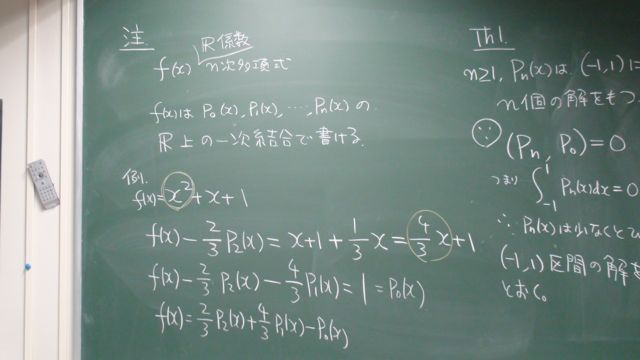 注
R係数
f(x) n次多項式
f(x)は P₀(x), P₁(x), …, Pₙ(x) の
R上の一次結合で書ける.
例.
f(x)= x²+x+1
f(x) - 2/3 P₂(x) = x+1+1/3 x = 4/3 x+1
f(x) - 2/3 P₂(x) - 4/3 P₁(x) = 1 = P₀(x)
f(x) = 2/3 P₂(x) + 4/3 P₁(x) - P₀(x)
Th1.
n≥1, Pₙ(x)は (-1,1)に
n個の解をもつ
∵ (Pₙ, P₀) = 0
つまり ∫₋₁¹ Pₙ(x)dx = 0
∴ Pₙ(x)は少なくとも
(-1,1)区間の解を
とおく。